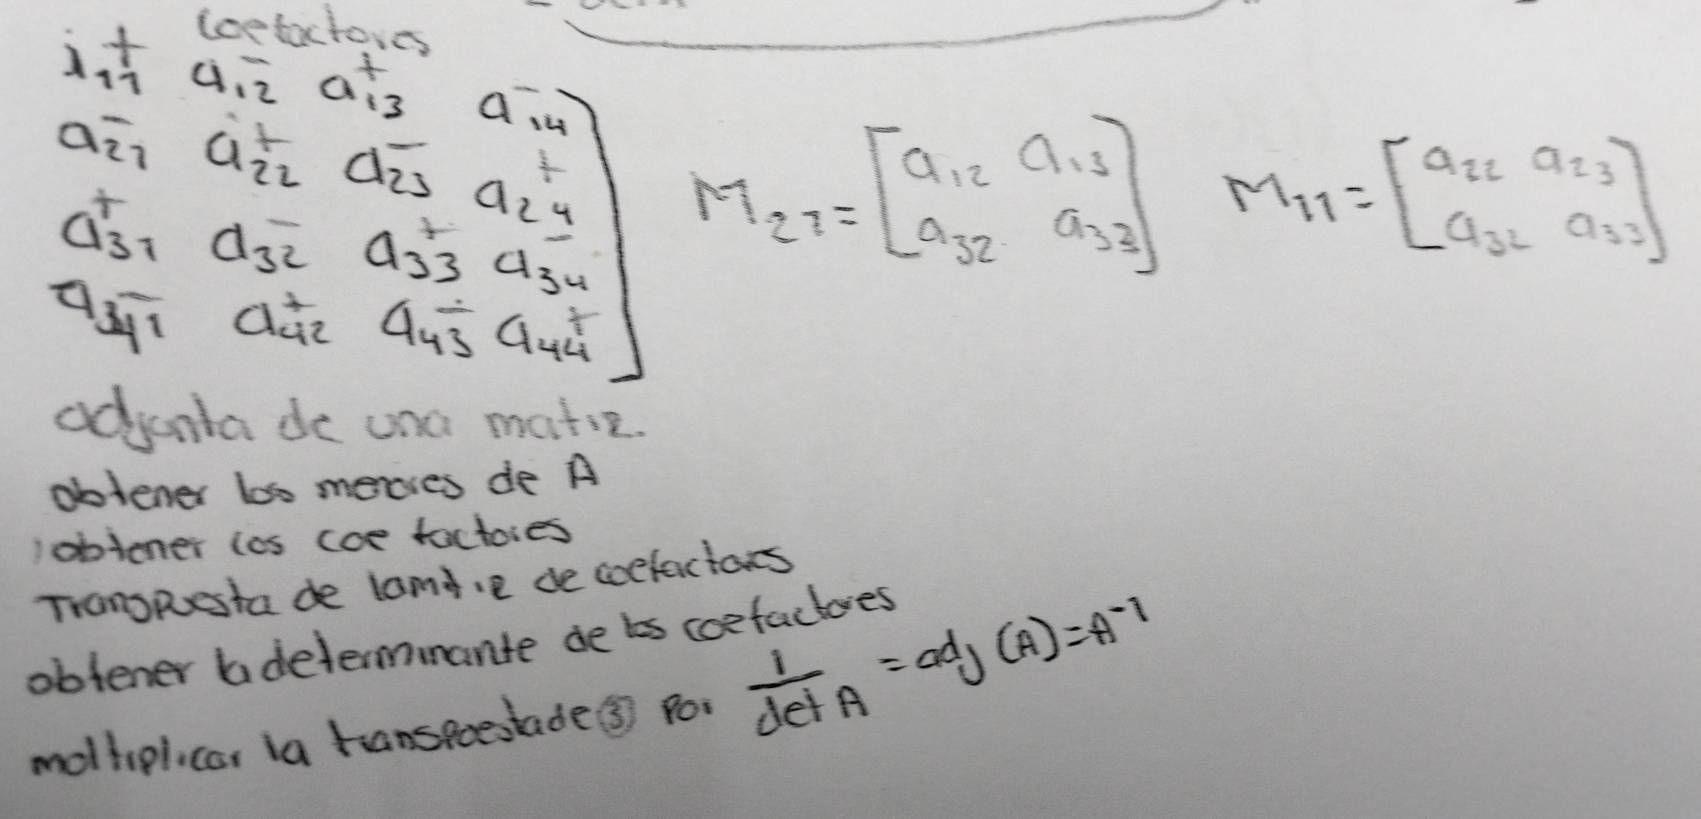 coefactores
a₁₁⁺ a₁₂⁻ a₁₃⁺ a₁₄⁻
a₂₁⁻ a₂₂⁺ a₂₃⁻ a₂₄⁺
a₃₁⁺ a₃₂⁻ a₃₃⁺ a₃₄⁻
a₄₁⁻ a₄₂⁺ a₄₃⁻ a₄₄⁺
M₂₁ = [a₁₂ a₁₃
a₃₂ a₃₃]
M₁₁ = [a₂₂ a₂₃
a₃₂ a₃₃]
adjunta de una matiz.
obtener los menores de A
obtener los coe factores
Transpuesta de la mtiz de coefactores
obtener la determinante de los coefactores
moltiplicar la transpoesta de ③ por 1/det A = adj (A) = A⁻¹